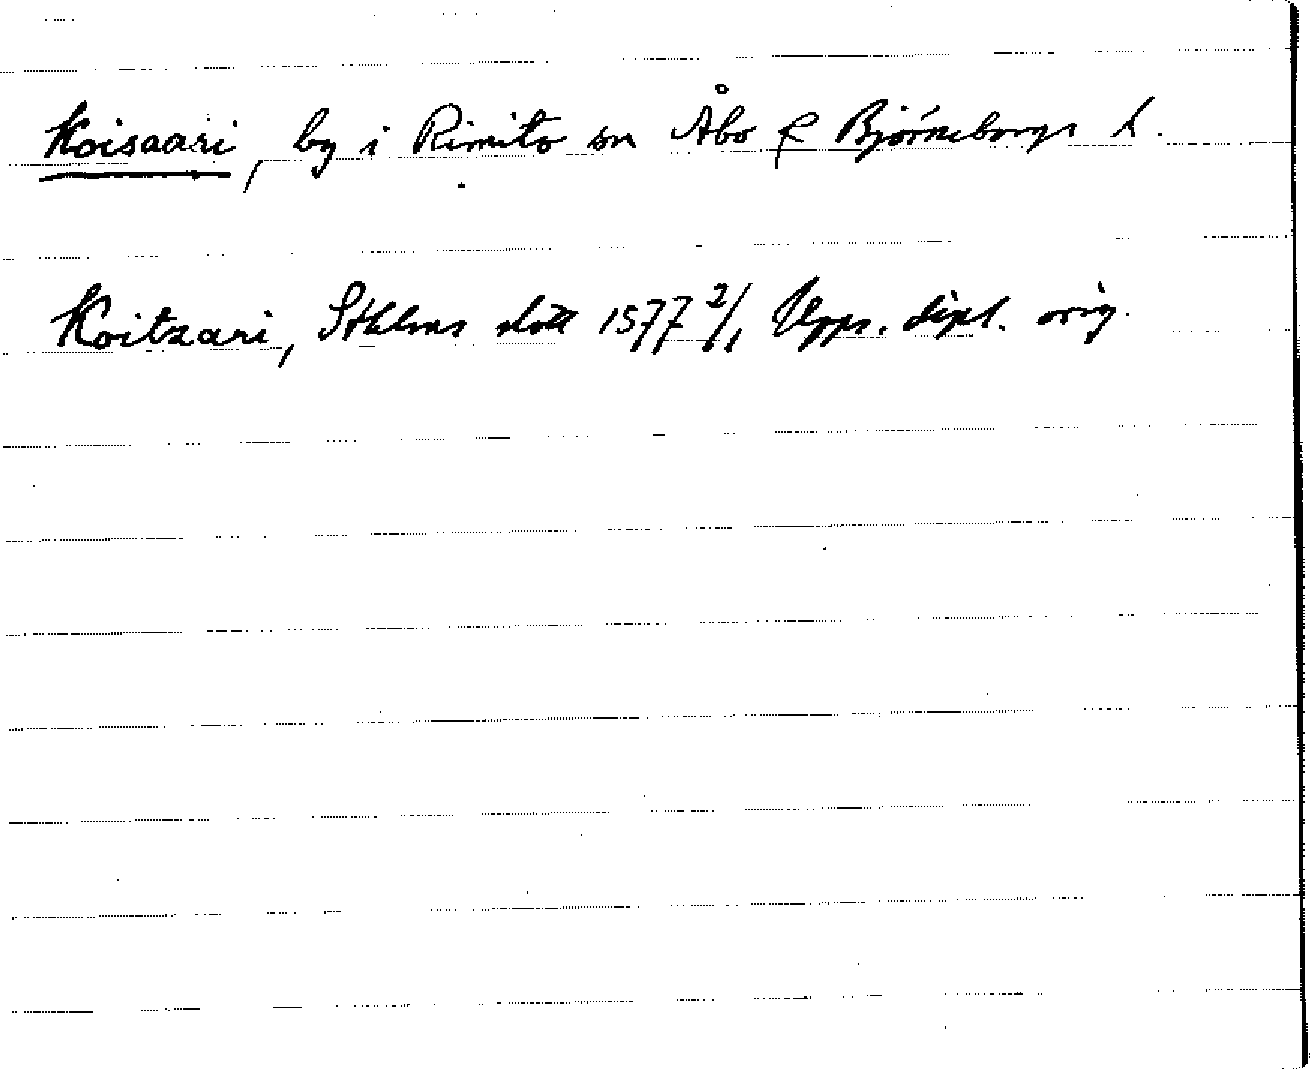 Koisaari, by i Rimito sn Åbo & Björneborgs l.
Koitzari, Sthlms slott 1577 2/1 Upps. dipl. orig.